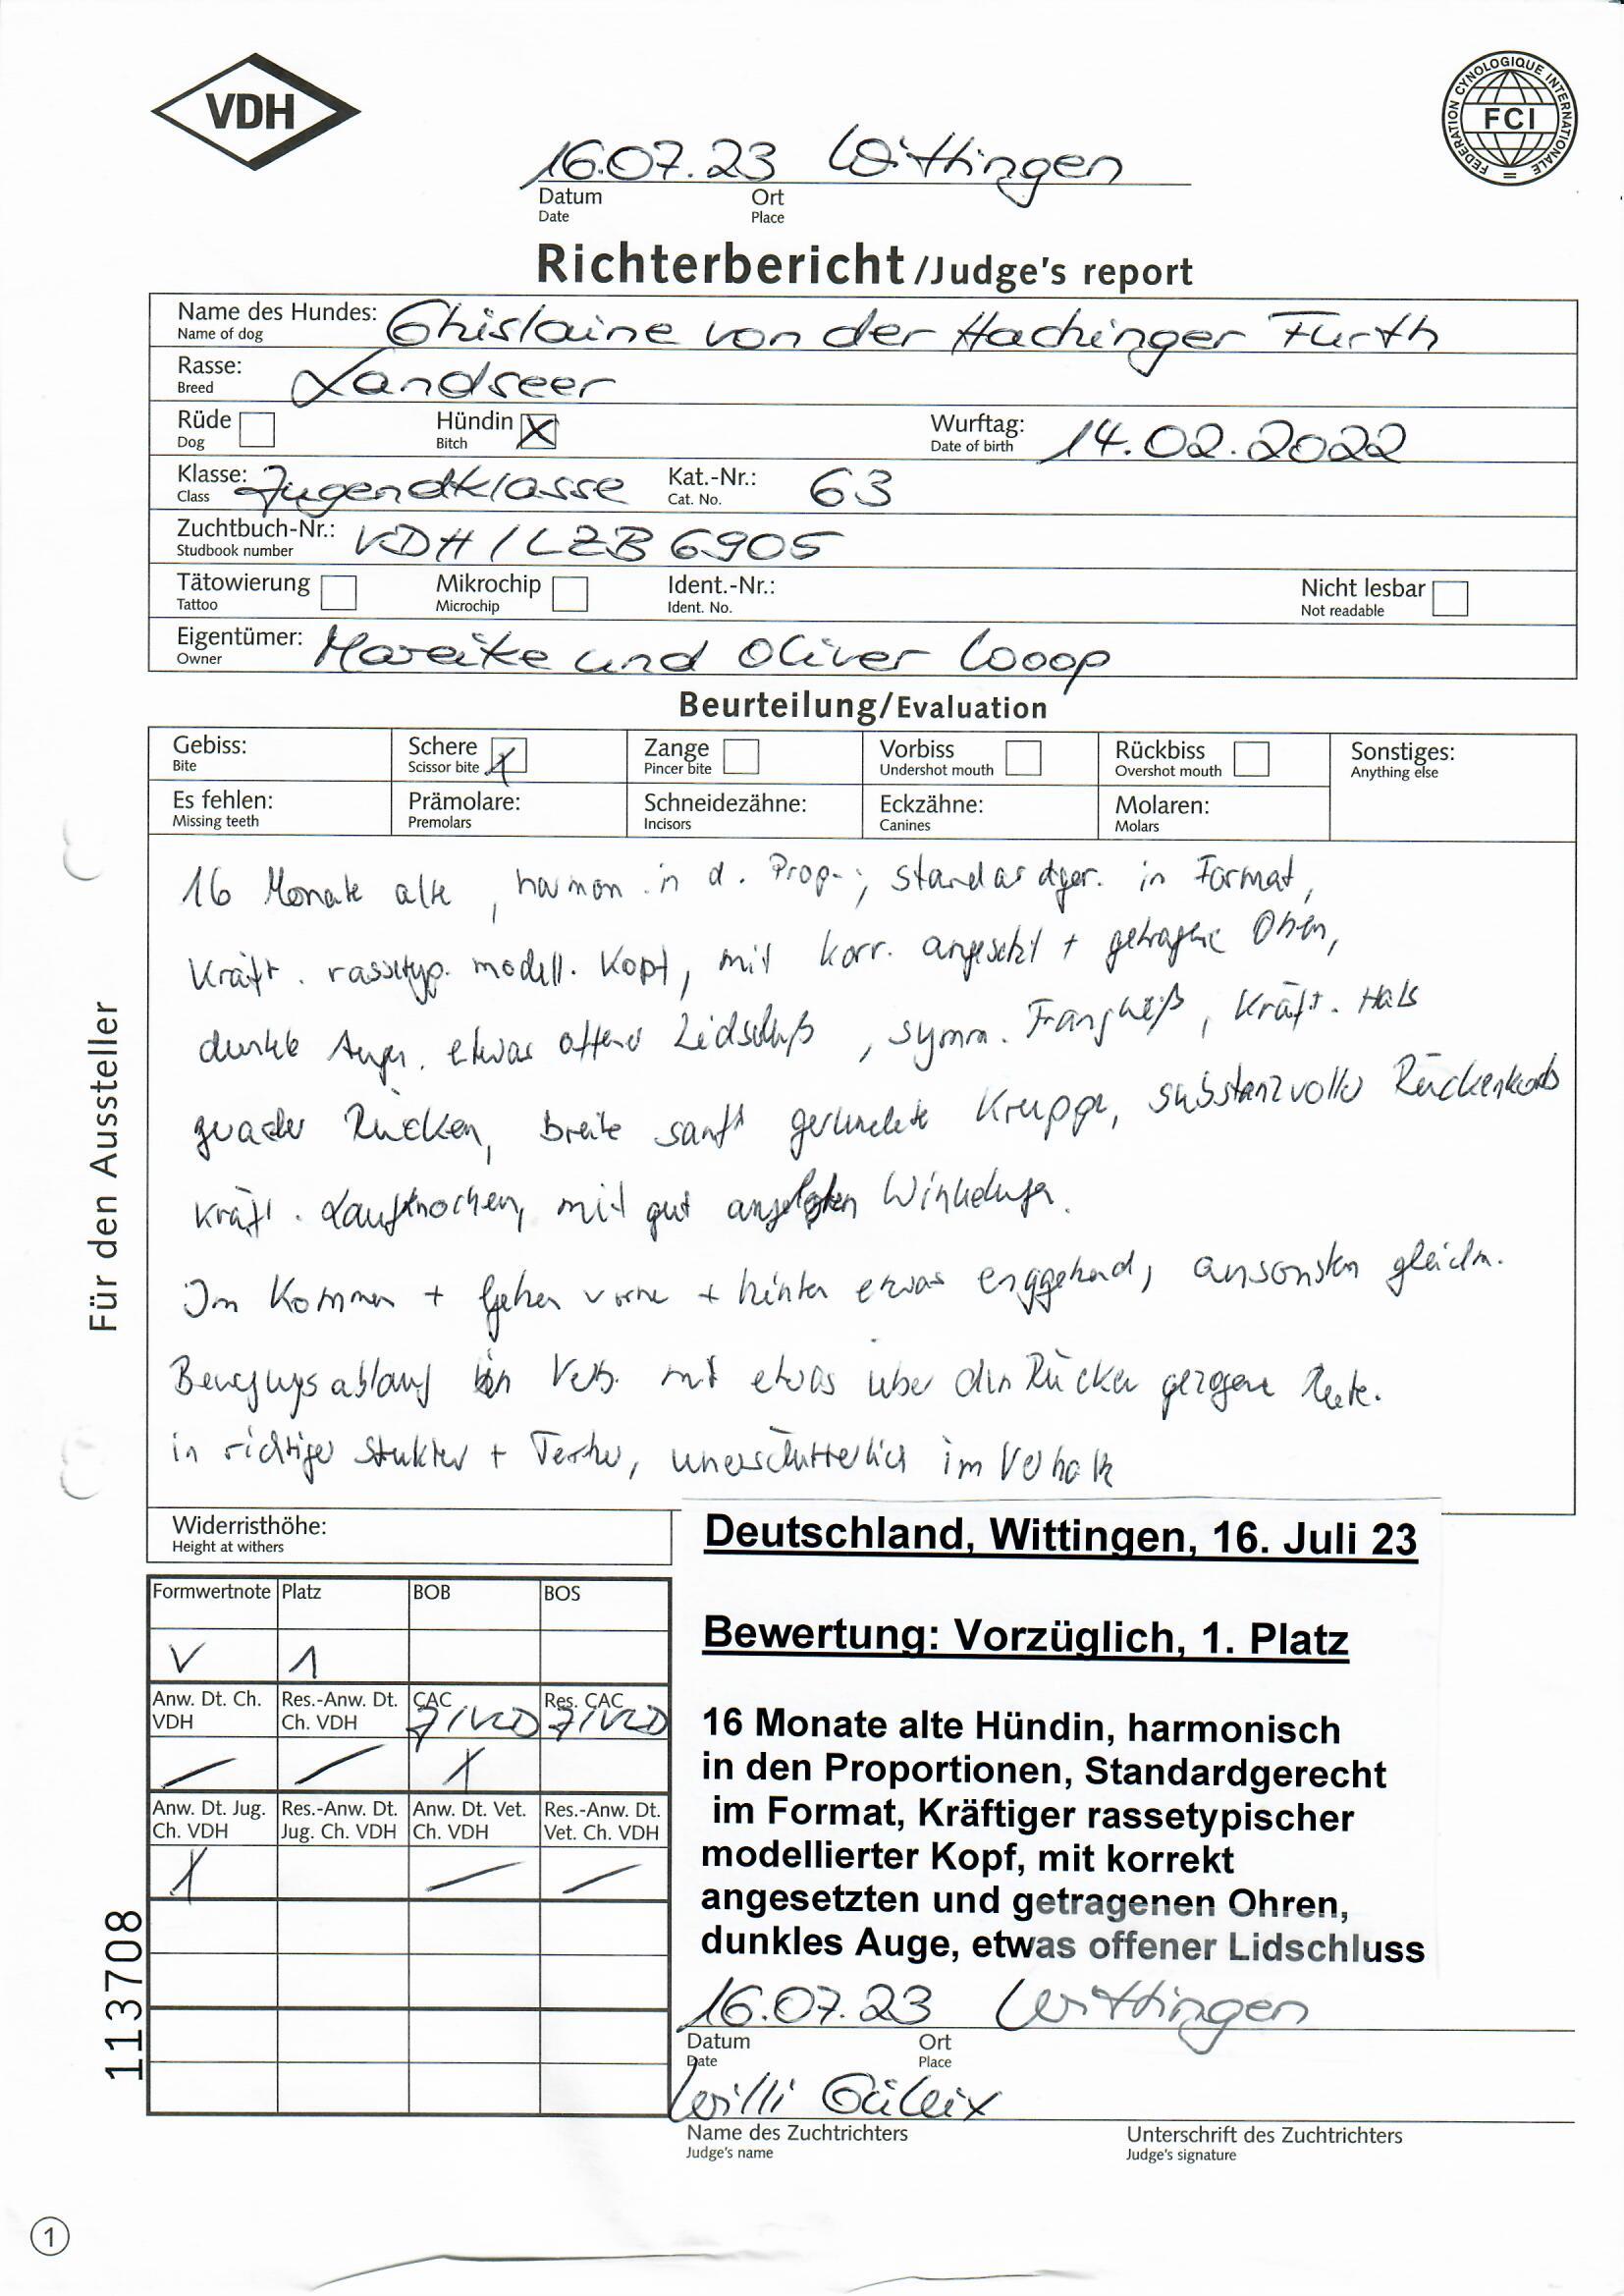 VDH
FEDERATION CYNOLOGIQUE INTERNATIONALE
FCI
16.07.23 Wittingen
Datum Ort
Date Place
Richterbericht/Judge's report
Name des Hundes: Ghislaine von der Hachinger Furth
Name of dog
Rasse: Landseer
Breed
Rüde Hündin X Wurftag: 14.02.2022
Dog Bitch Date of birth
Klasse: Jugendklasse Kat.-Nr.: 63
Class Cat. No.
Zuchtbuch-Nr.: VDH / LZB 6905
Studbook number
Tätowierung Mikrochip Ident.-Nr.: Nicht lesbar
Tattoo Microchip Ident. No. Not readable
Eigentümer: Mareike und Oliver
Owner
Beurteilung/Evaluation
Gebiss: Schere X Zange Vorbiss Rückbiss Sonstiges:
Bite Scissor bite Pincer bite Undershot mouth Overshot mouth Anything else
Es fehlen: Prämolare: Schneidezähne: Eckzähne: Molaren:
Missing teeth Premolars Incisors Canines Molars
16 Monate alte, harmon. in d. Prop., standardger. in Format,
Kräft. rassetyp. modell. Kopf, mit korr. angesetzt + getragene Ohren,
dunkle Augen, etwas offener Lidschluß, symm. Fangweiß, kräft. Hals
gerader Rücken, breite sanft gerundete Kruppe, substanzvoller
kräft. Laufknochen, mit gut angelegten Winkelungen.
Im Kommen + Gehen vorne + hinten etwas enggehend, ansonsten gleichm.
Bewegungsablauf mit etwas über den Rücken gezogene Rute.
in richtiger Struktur + Textur, unerschütterlich im Verhalten
Für den Aussteller
Widerristhöhe:
Height at withers
Deutschland, Wittingen, 16. Juli 23
Bewertung: Vorzüglich, 1. Platz
16 Monate alte Hündin, harmonisch
in den Proportionen, Standardgerecht
im Format, Kräftiger rassetypischer
modellierter Kopf, mit korrekt
angesetzten und getragenen Ohren,
dunkles Auge, etwas offener Lidschluss
Formwertnote Platz BOB BOS
V 1
Anw. Dt. Ch. Res.-Anw. Dt. CAC Res. CAC
VDH Ch. VDH
— — X
Anw. Dt. Jug. Res.-Anw. Dt. Anw. Dt. Vet. Res.-Anw. Dt.
Ch. VDH Jug. Ch. VDH Ch. VDH Vet. Ch. VDH
X — —
113708
16.07.23 Wittingen
Datum Ort
Date Place
Willi Güllix
Name des Zuchtrichters Unterschrift des Zuchtrichters
Judge's name Judge's signature
1